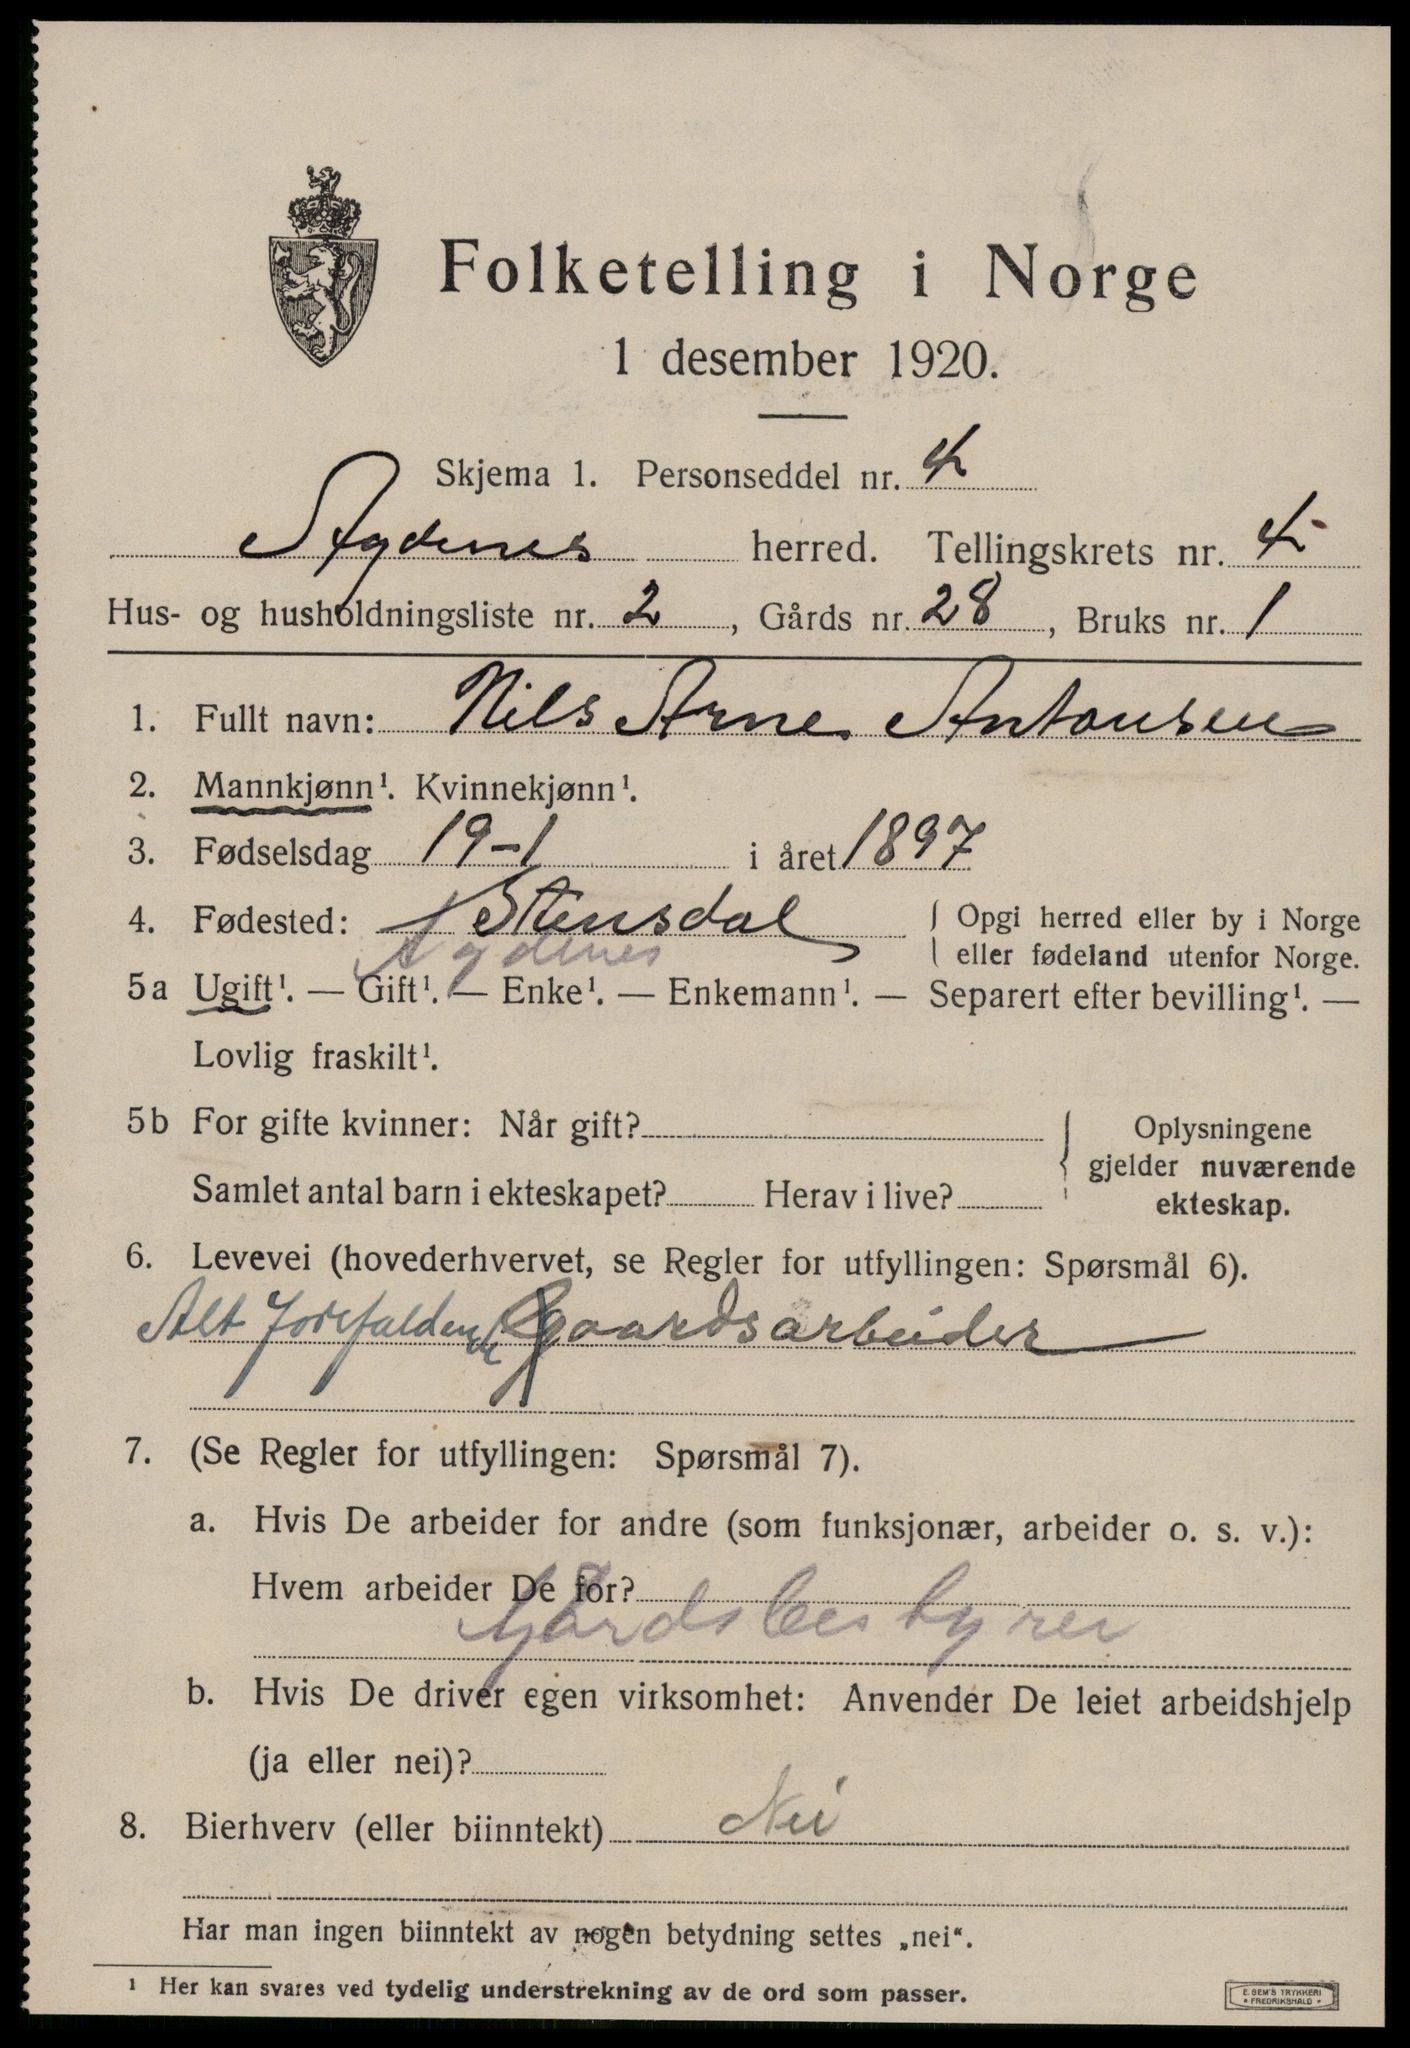 Folketelling i Norge
1 desember 1920.
Skjema 1. Personseddel nr. 4
Agdenes herred. Tellingskrets nr. 4
Hus- og husholdningsliste nr. 2, Gårds nr. 28, Bruks nr. 1
1. Fullt navn: Nils Arne Antonsen
2. Mannkjønn¹. Kvinnekjønn¹.
3. Fødselsdag 19-1 i året 1897
4. Fødested: Stensdal { Opgi herred eller by i Norge
eller fødeland utenfor Norge.
Agdenes
5a Ugift¹. — Gift¹. — Enke¹. — Enkemann¹. — Separert efter bevilling¹. —
Lovlig fraskilt¹.
5b For gifte kvinner: Når gift? { Oplysningene
gjelder nuværende
Samlet antal barn i ekteskapet? Herav i live? ekteskap.
6. Levevei (hovederhvervet, se Regler for utfyllingen: Spørsmål 6).
Alt forefaldende gaardsarbeider
7. (Se Regler for utfyllingen: Spørsmål 7).
a. Hvis De arbeider for andre (som funksjonær, arbeider o. s. v.):
Hvem arbeider De for?
Gårdsbestyrer
b. Hvis De driver egen virksomhet: Anvender De leiet arbeidshjelp
(ja eller nei)?
8. Bierhverv (eller biinntekt) Nei
Har man ingen biinntekt av nogen betydning settes „nei“.
¹ Her kan svares ved tydelig understrekning av de ord som passer.
E. SEM'S TRYKKERI
• FREDRIKSHALD •